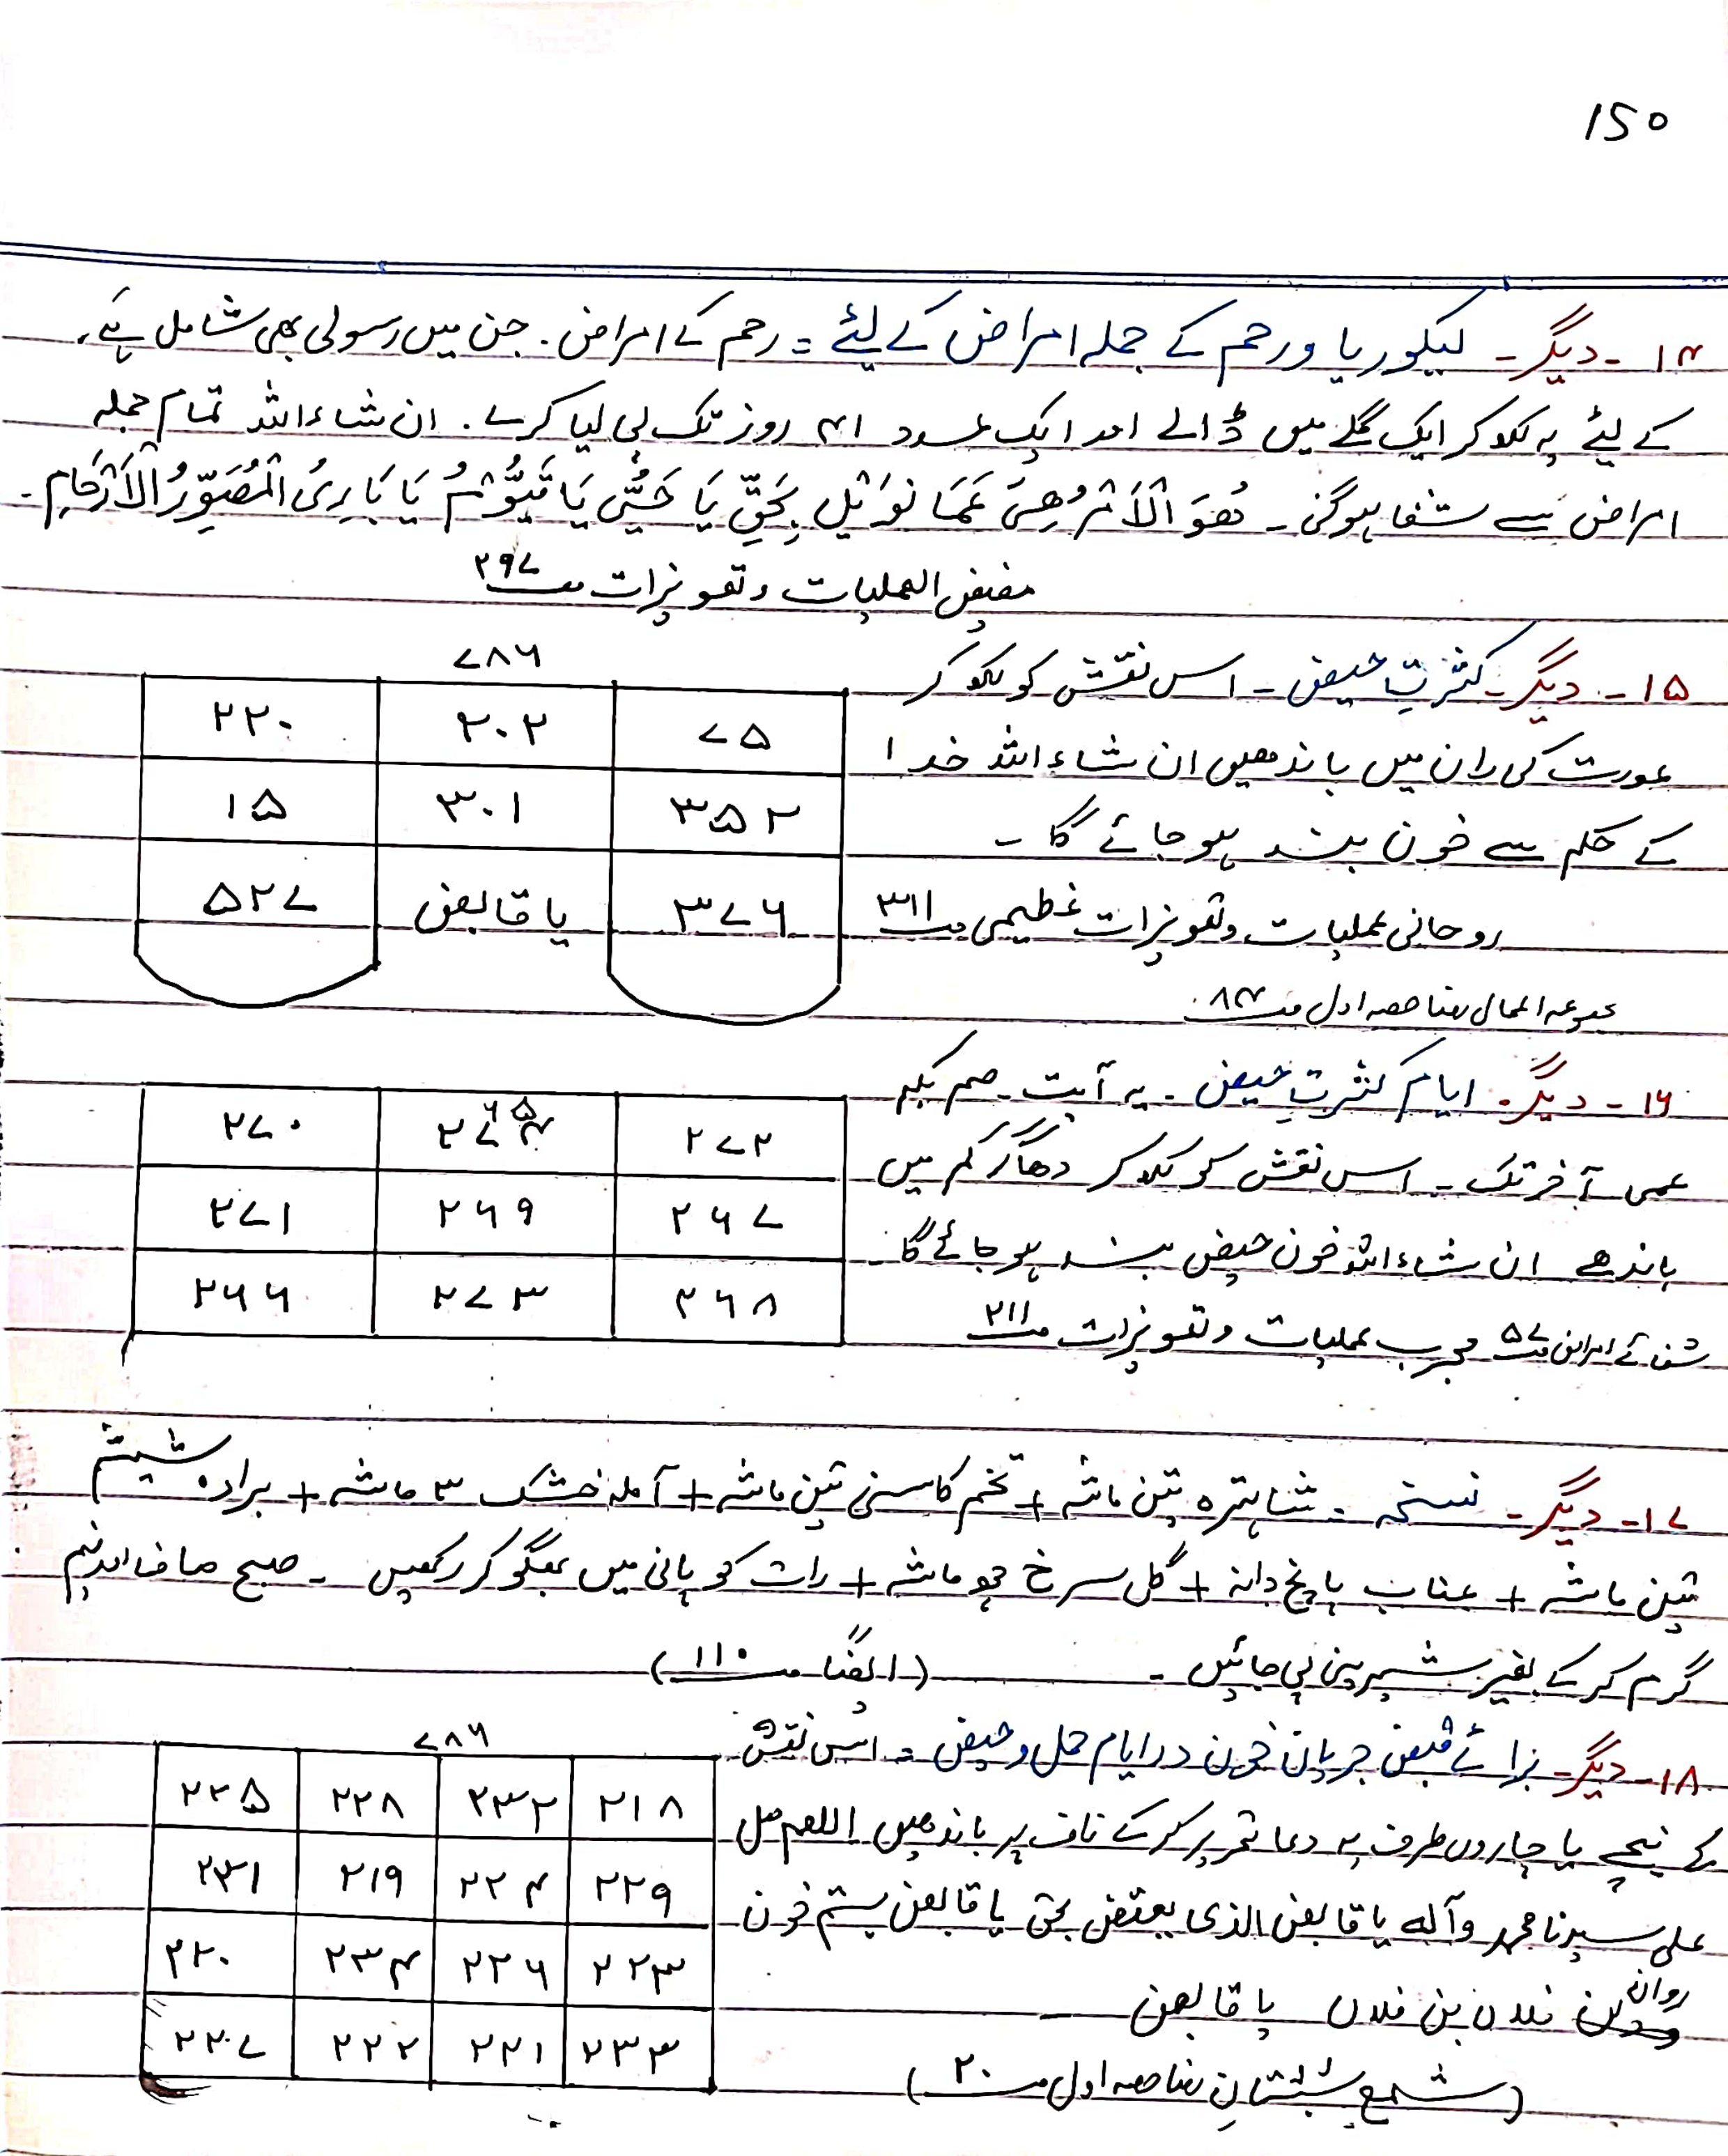 150
۱۴ - دیگر - لیکوریا و رحم کے جملہ امراض کے لئے = رحم کے امراض۔ جن میں رسولی بھی شامل ہے۔
کے لئے یہ لکھ کر ایک گلے میں ڈالے اور ایک عدد ۴۱ روز تک پی لیا کرے۔ ان شاءاللہ تمام جملہ
امراض سے شفا ہوگی - هُوَ الْاَمْرُ هِىَ بِحَقِّ يَا حَيُّ يَا قَيُّوْمُ يَا بَارِئُ الْمُصَوِّرُ الْاَرْحَامِ -
العملیات و تعویذات صـ ۲۹۷
۱۵ - دیگر - کثرتِ حیض - اس نقش کو لکھ کر
عورت کی ران میں باندھیں ان شاءاللہ خدا
کے حکم سے خون بند ہو جائے گا -
روحانی عملیات و تعویذات عظیمی صـ ۳۱۱
مجموعہ اعمال رضا حصہ اول صـ ۸۴
۷۸۶
۲۲۰ ۲۰۲ ۷۵
۱۵ ۳۰۱ ۳۵۲
۵۲۷ یا قابض ۳۷۶
۱۶ - دیگر - ایام کثرتِ حیض - یہ آیت - صم بکم
عمی آخر تک - اس نقش کو لکھ کر دھاگر کمر میں
باندھے ان شاءاللہ خون حیض بند ہو جائے گا -
صـ ۵۷ مجرب عملیات و تعویذات صـ ۲۱۱
۲۷۰ ۲۶۵ ۲۷۲
۲۷۱ ۲۶۹ ۲۶۷
۲۶۶ ۲۷۳ ۲۶۸
۱۷ - دیگر - نسخہ - شاہترہ تین ماشہ + تخم کاسنی تین ماشہ + آملہ خشک ۳ ماشہ + برادہ شیشم
تین ماشہ + عناب پانچ دانہ + گل سرخ چھ ماشہ + رات کو پانی میں بھگو کر رکھیں - صبح صاف اور نیم
گرم کر کے بغیر شیرینی پی جائیں - (ایضًا صـ ۱۱۰)
۱۸ - دیگر - برائے قبض جریان خون در ایام حمل و حیض = اس نقش
کے نیچے یا چاروں طرف یہ دعا تحریر کر کے ناف پر باندھیں اللھم صل
علی سیدنا محمد وآلہ یا قابض الذی یقبض بحق یا قابض بستم خون
روان فلاں بن فلاں یا قابض -
(شمع شبستانِ رضا حصہ اول صـ ۲۰)
۷۸۶
۲۲۵ ۲۲۸ ۲۳۲ ۲۱۸
۲۳۱ ۲۱۹ ۲۲۴ ۲۲۹
۲۲۰ ۲۳۴ ۲۲۶ ۲۲۳
۲۲۷ ۲۲۲ ۲۲۱ ۲۳۳